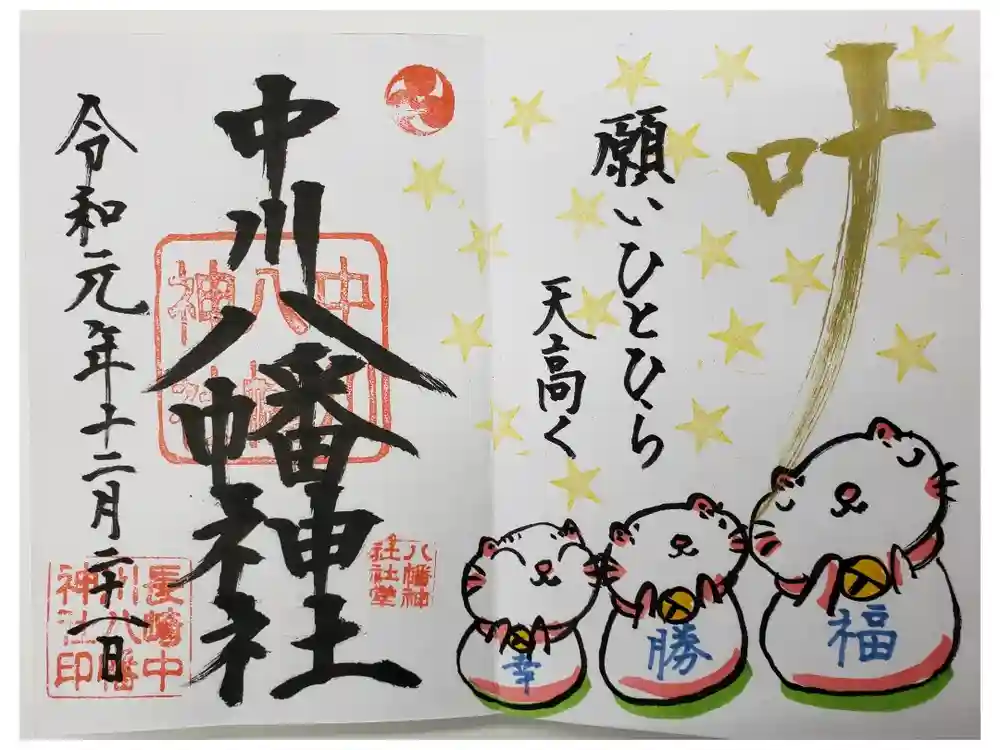 叶
願いひとひら
天高く
福
勝
幸
中川八幡神社
中川
八幡
神社
八幡神
社社堂
令和元年十二月二十八日
長崎中
川八幡
神社印